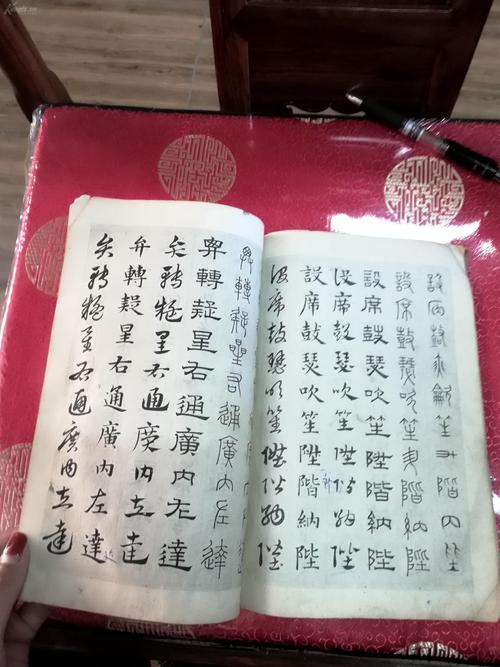 設席鼓瑟龡笙升階內陛
設席鼓瑟吹笙升階納陛
設席鼓瑟吹笙陞階納陛
設席鼓瑟吹笙陞階納陛
設席鼓瑟吹笙陞階納陛
設席鼓瑟吹笙陞階納陛
弁轉疑星右通廣內左達
弁轉疑星右通廣內左達
弁轉疑星右通廣內左達
弁轉疑星右通廣內左達
弁轉疑星右通廣內左達